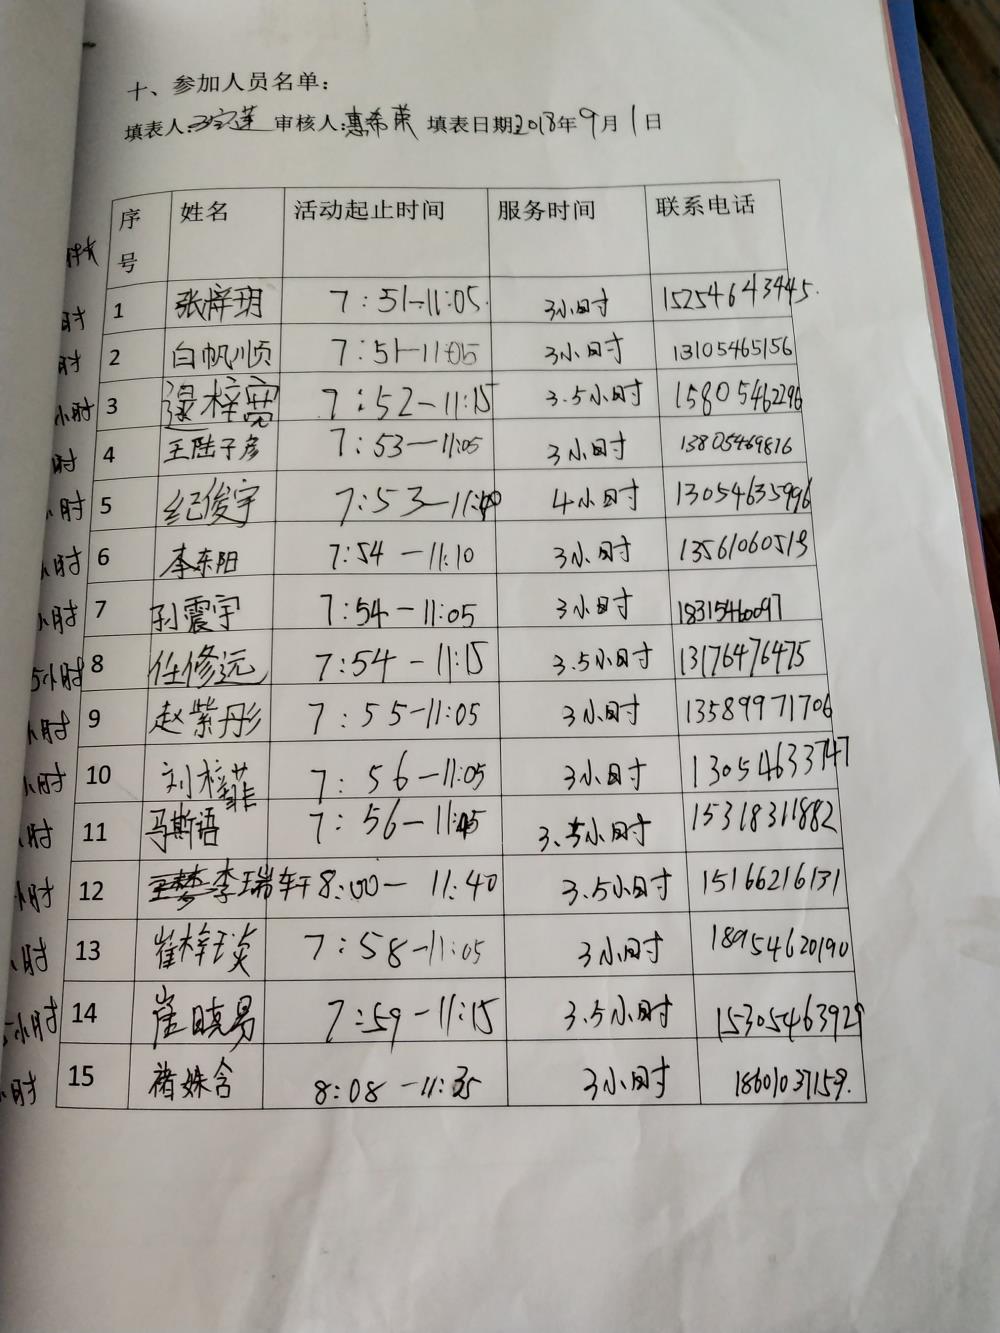 十、参加人员名单：
填表人: 审核人:惠希荣 填表日期2018年9月1日
序号 姓名 活动起止时间 服务时间 联系电话
1 张梓玥 7:51-11:05. 3小时 15254643445.
2 白帆顺 7:51-11:05 3小时 13105465156
3 逯梓宽 7:52-11:15 3.5小时 15805462296
4 王陆子彦 7:53-11:05 3小时 13805469816
5 纪俊宇 7:53-11:40 4小时 13054635996
6 李东阳 7:54-11:10 3小时 13561060513
7 孙震宇 7:54-11:05 3小时 18315460097
8 任修远 7:54-11:15 3.5小时 13176476475
9 赵紫彤 7:55-11:05 3小时 13589971706
10 刘梓菲 7:56-11:05 3小时 13054633747
11 马斯语 7:56-11:45 3.5小时 15318311882
12 李瑞轩 8:00-11:40 3.5小时 15166216131
13 崔梓琰 7:58-11:05 3小时 18954620190
14 崔晓易 7:59-11:15 3.5小时 15305463929
15 褚姝含 8:08-11:35 3小时 18601037159.